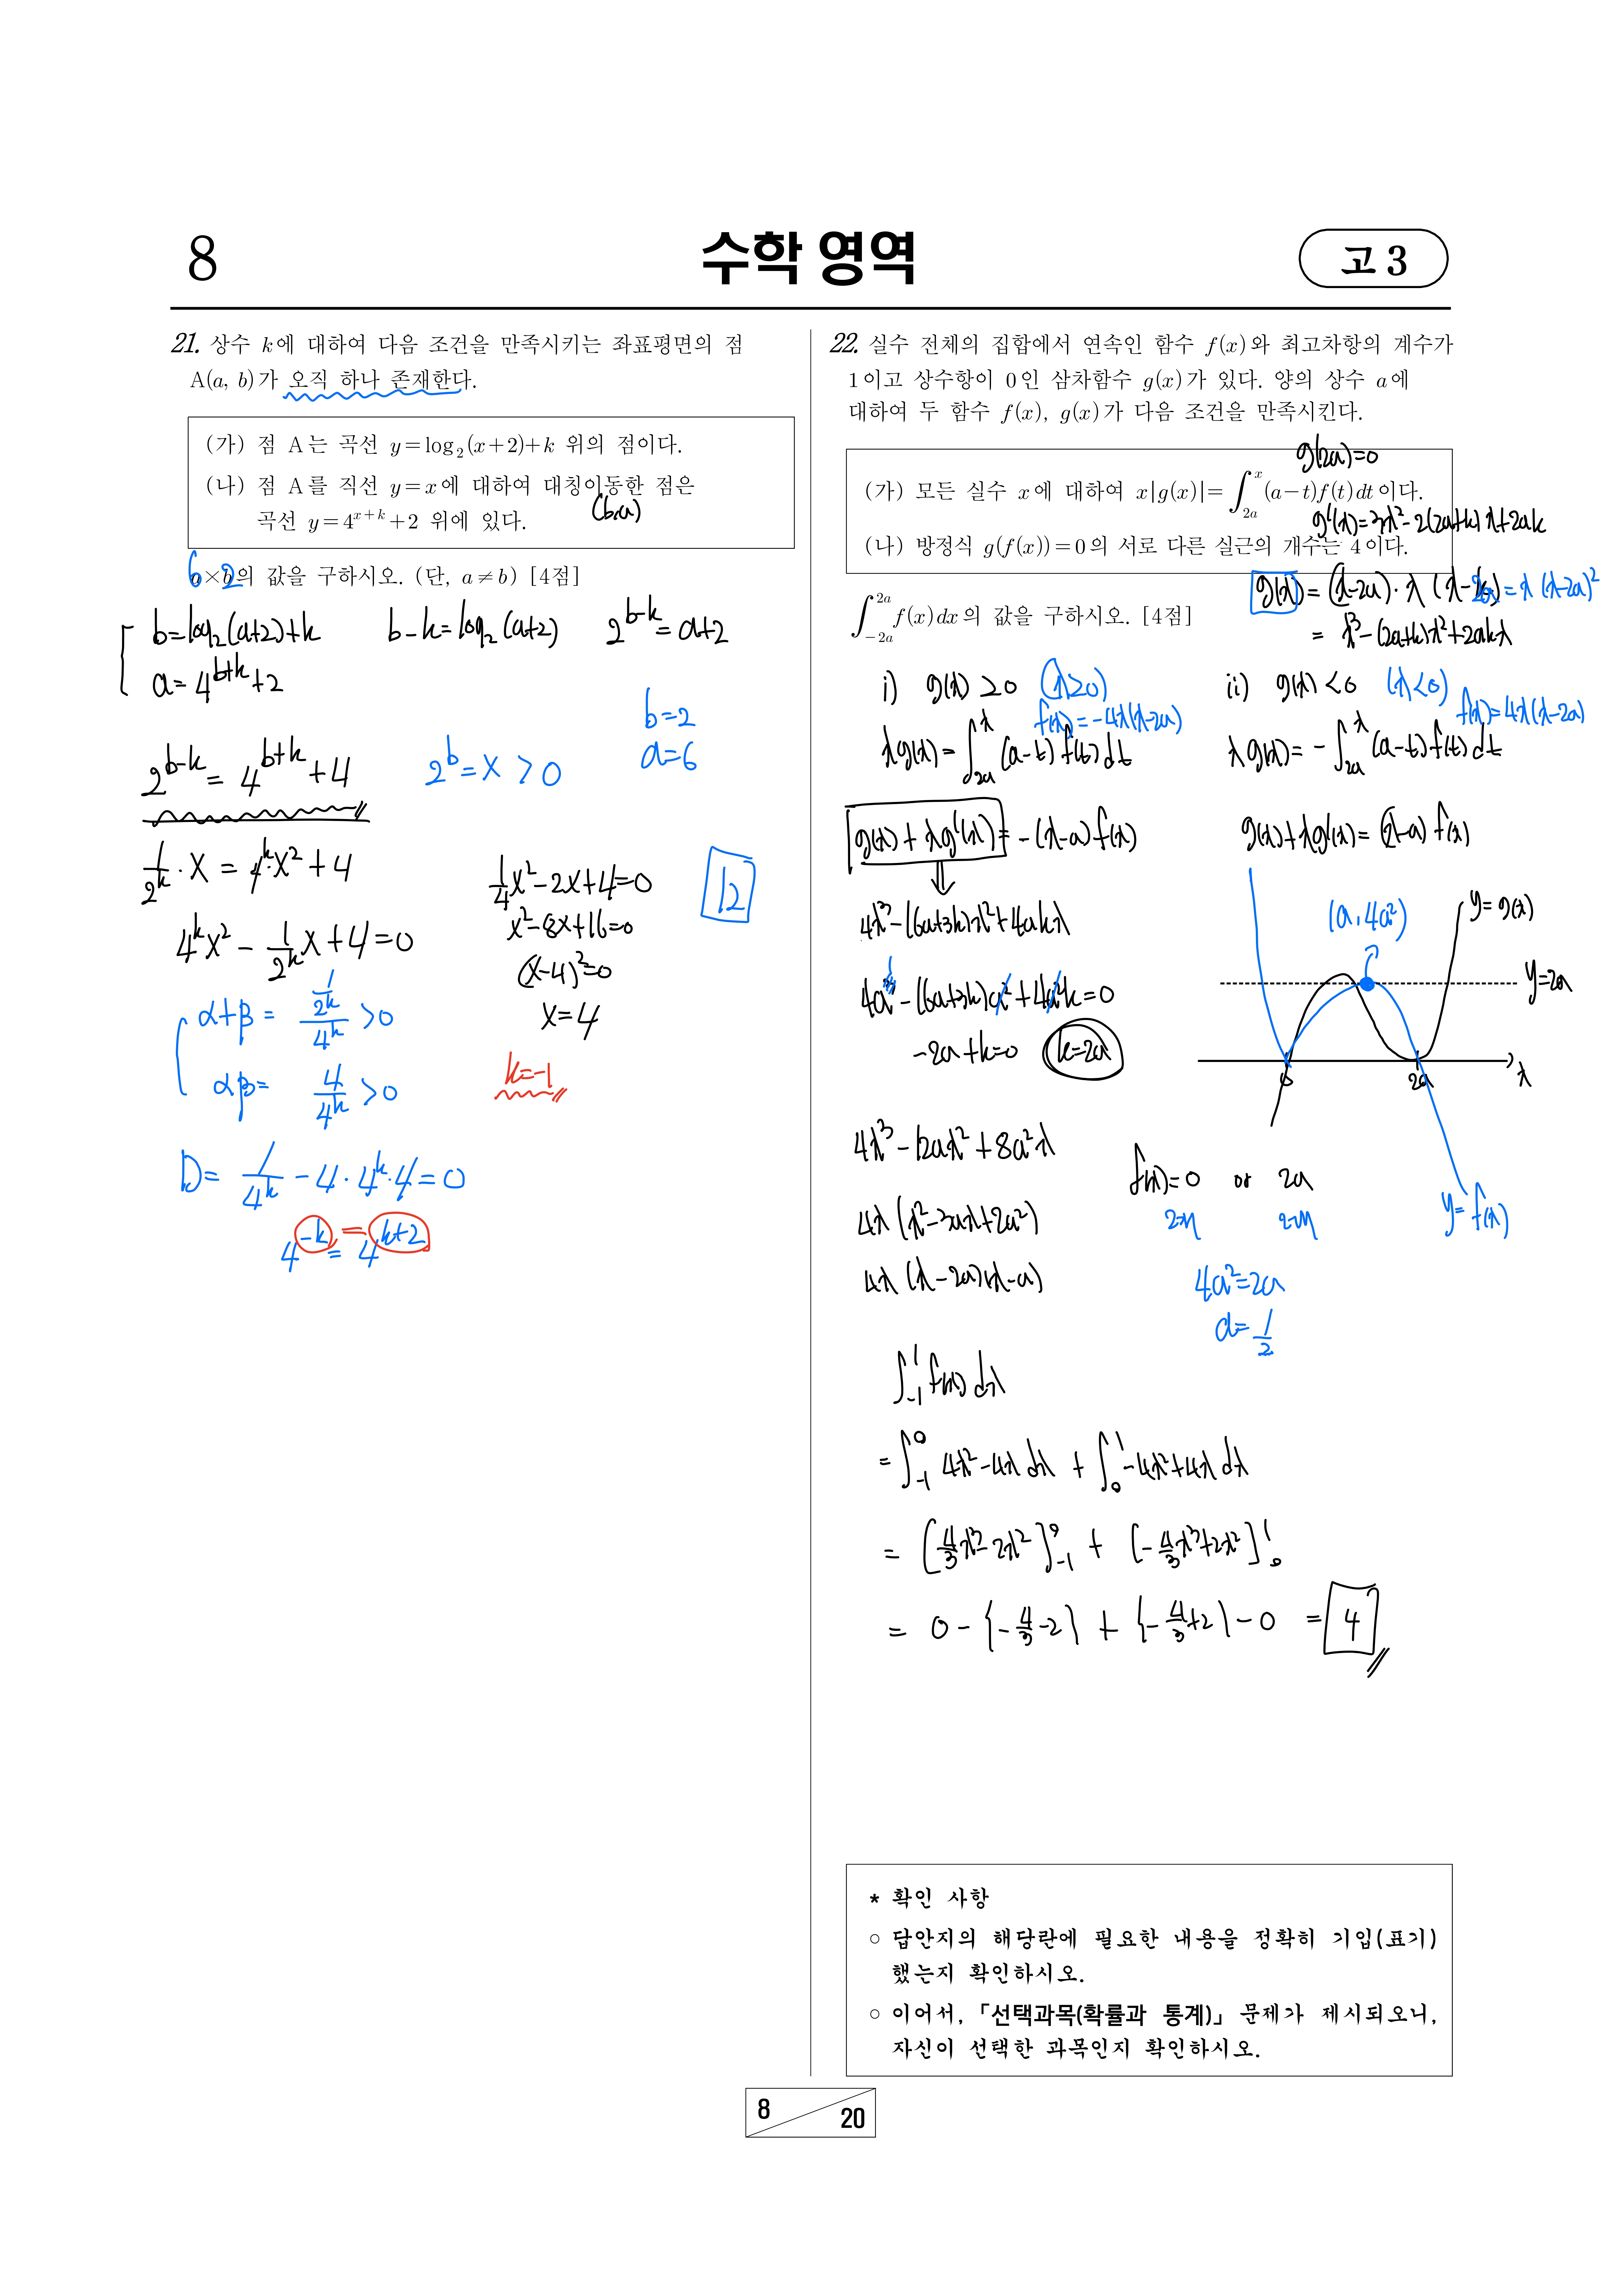 8
수학 영역
고 3
21. 상수 k에 대하여 다음 조건을 만족시키는 좌표평면의 점
A(a, b)가 오직 하나 존재한다.
(가) 점 A는 곡선 y=log₂(x+2)+k 위의 점이다.
(나) 점 A를 직선 y=x에 대하여 대칭이동한 점은
(b,a)
곡선 y=4^{x+k}+2 위에 있다.
6 2
a×b의 값을 구하시오. (단, a≠b) [4점]
b=log₂(a+2)+k b-k=log₂(a+2) 2^{b-k}=a+2
a=4^{b+k}+2
b=2
a=6
2^{b-k}=4^{b+k}+4 2^b=X >0
1/2^k·X=4^k·X²+4
4^kX²-1/2^k X+4=0
α+β= (1/2^k)/4^k >0
αβ= 4/4^k >0
D= 1/4^k -4·4^k·4=0
4^{-k}=4^{k+2}
1/4X²-2X+4=0
X²-8X+16=0
(X-4)²=0
X=4
k=-1
12
22. 실수 전체의 집합에서 연속인 함수 f(x)와 최고차항의 계수가
1이고 상수항이 0인 삼차함수 g(x)가 있다. 양의 상수 a에
대하여 두 함수 f(x), g(x)가 다음 조건을 만족시킨다.
g(2a)=0
(가) 모든 실수 x에 대하여 x|g(x)|=∫_{2a}^{x}(a-t)f(t)dt이다.
g'(x)=3x²-2(2a+k)x+2ak
(나) 방정식 g(f(x))=0의 서로 다른 실근의 개수는 4이다.
∫_{-2a}^{2a}f(x)dx의 값을 구하시오. [4점]
g(x)=(x-2a)·x(x-2a)=x(x-2a)²
=x³-(2a+k)x²+2akx
i) g(x)≥0 (x≥0)
f(x)=-4x(x-2a)
xg(x)=∫_{2a}^{x}(a-t)f(t)dt
ii) g(x)<0 (x<0)
f(x)=4x(x-2a)
xg(x)=-∫_{2a}^{x}(a-t)f(t)dt
g(x)+xg'(x)=-(x-a)f(x)
g(x)+xg'(x)=(x-a)f(x)
4x³-(6a+3k)x²+4akx
4a³-(6a+3k)a²+4a²k=0
-2a+k=0 k=2a
(a,4a²)
y=g(x)
y=2a
0 2a x
y=f(x)
4x³-12ax²+8a²x
4x(x²-3ax+2a²)
4x(x-2a)(x-a)
f(x)=0 or 2a
2개 2개
4a²=2a
a=1/2
∫_{-1}^{1}f(x)dx
=∫_{-1}^{0}4x²-4xdx+∫_{0}^{1}-4x²+4xdx
=[4/3x³-2x²]_{-1}^{0}+[-4/3x³+2x²]_{0}^{1}
=0-{-4/3-2}+{-4/3+2}-0=4
* 확인 사항
○ 답안지의 해당란에 필요한 내용을 정확히 기입(표기)
했는지 확인하시오.
○ 이어서, 「선택과목(확률과 통계)」 문제가 제시되오니,
자신이 선택한 과목인지 확인하시오.
8 20